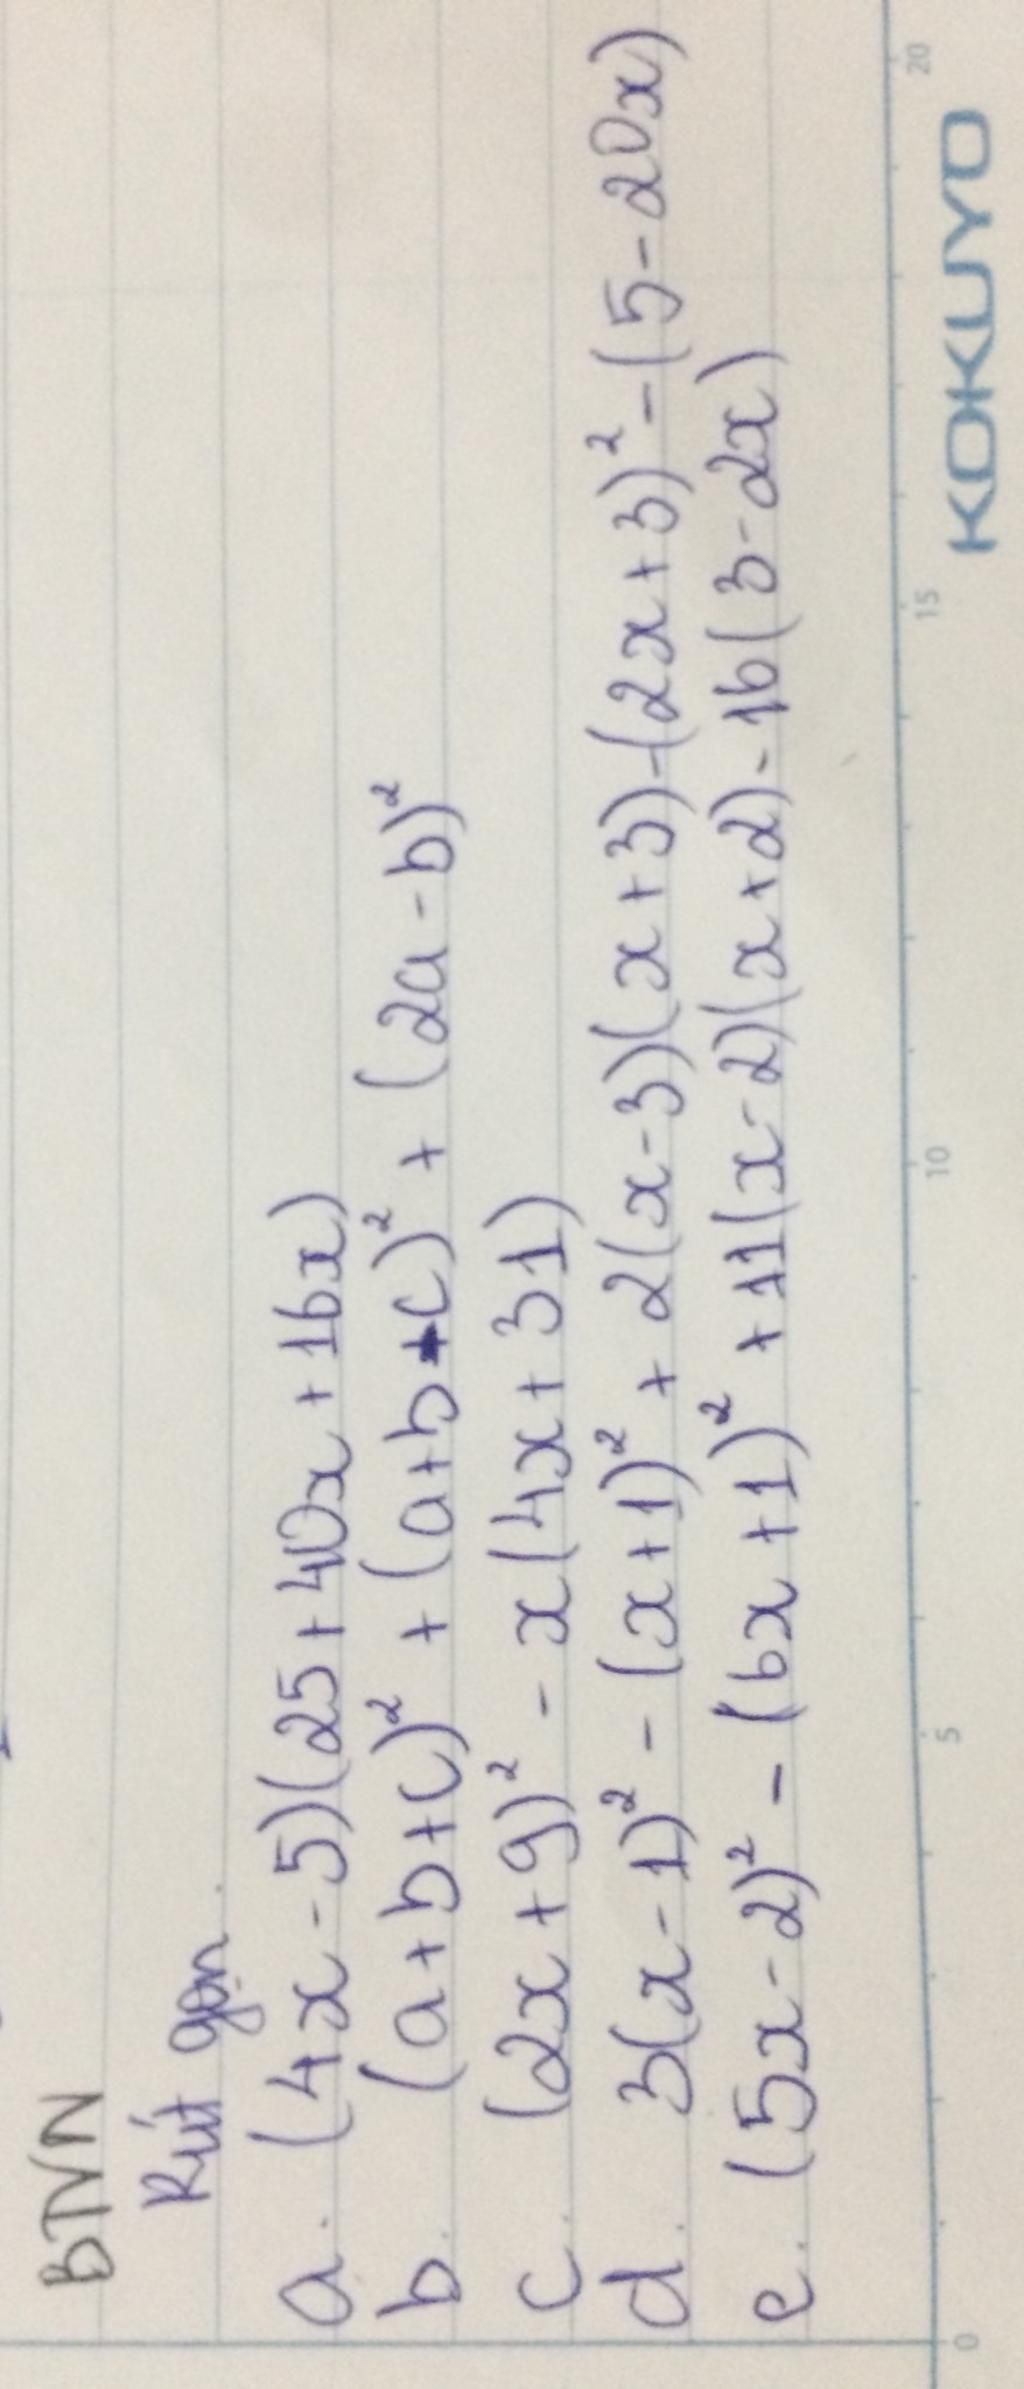 BTVN
Rút gọn.
a. (4x - 5)(25 + 40x + 16x)
b. (a + b + c)² + (a + b + c)² + (2a - b)²
c. (2x + 9)² - x(4x + 31)
d. 3(x - 1)² - (x + 1)² + 2(x - 3)(x + 3) - (2x + 3)² - (5 - 20x)
e. (5x - 2)² - (6x + 1)² + 11(x - 2)(x + 2) - 16(3 - 2x)
0 5 10 15 20
KOKUYO